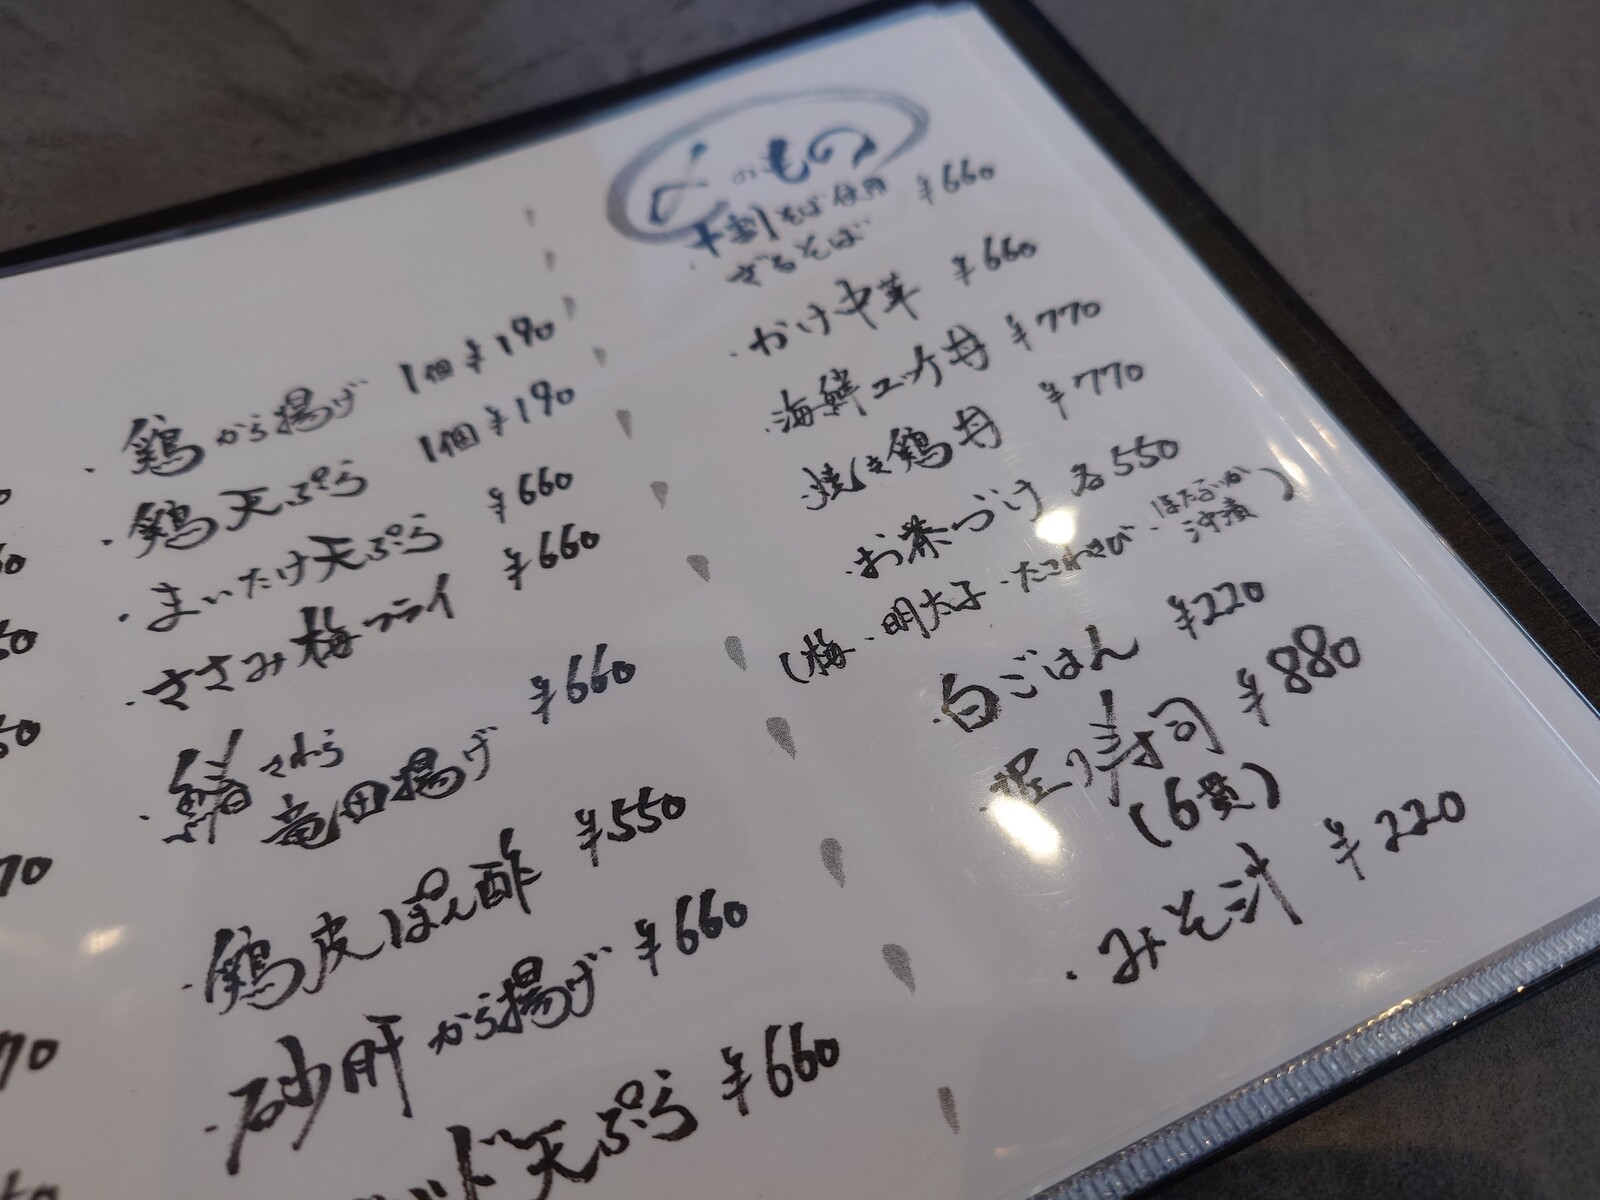 ・鶏から揚げ 1個¥190
・鶏天ぷら 1個¥190
・まいたけ天ぷら ¥660
・ささみ梅フライ ¥660
・鰆さわら
竜田揚げ ¥660
・鶏皮ぽん酢 ¥550
・砂肝から揚げ ¥660
ド天ぷら ¥660
〆のもの
・十割そば使用
ざるそば ¥660
・かけ中華 ¥660
・海鮮ユッケ丼 ¥770
・焼き鶏丼 ¥770
・お茶づけ 各550
(梅・明太子・たこわさび・ほたるいか沖漬)
・白ごはん ¥220
・握り寿司 ¥880
(6貫)
・みそ汁 ¥220